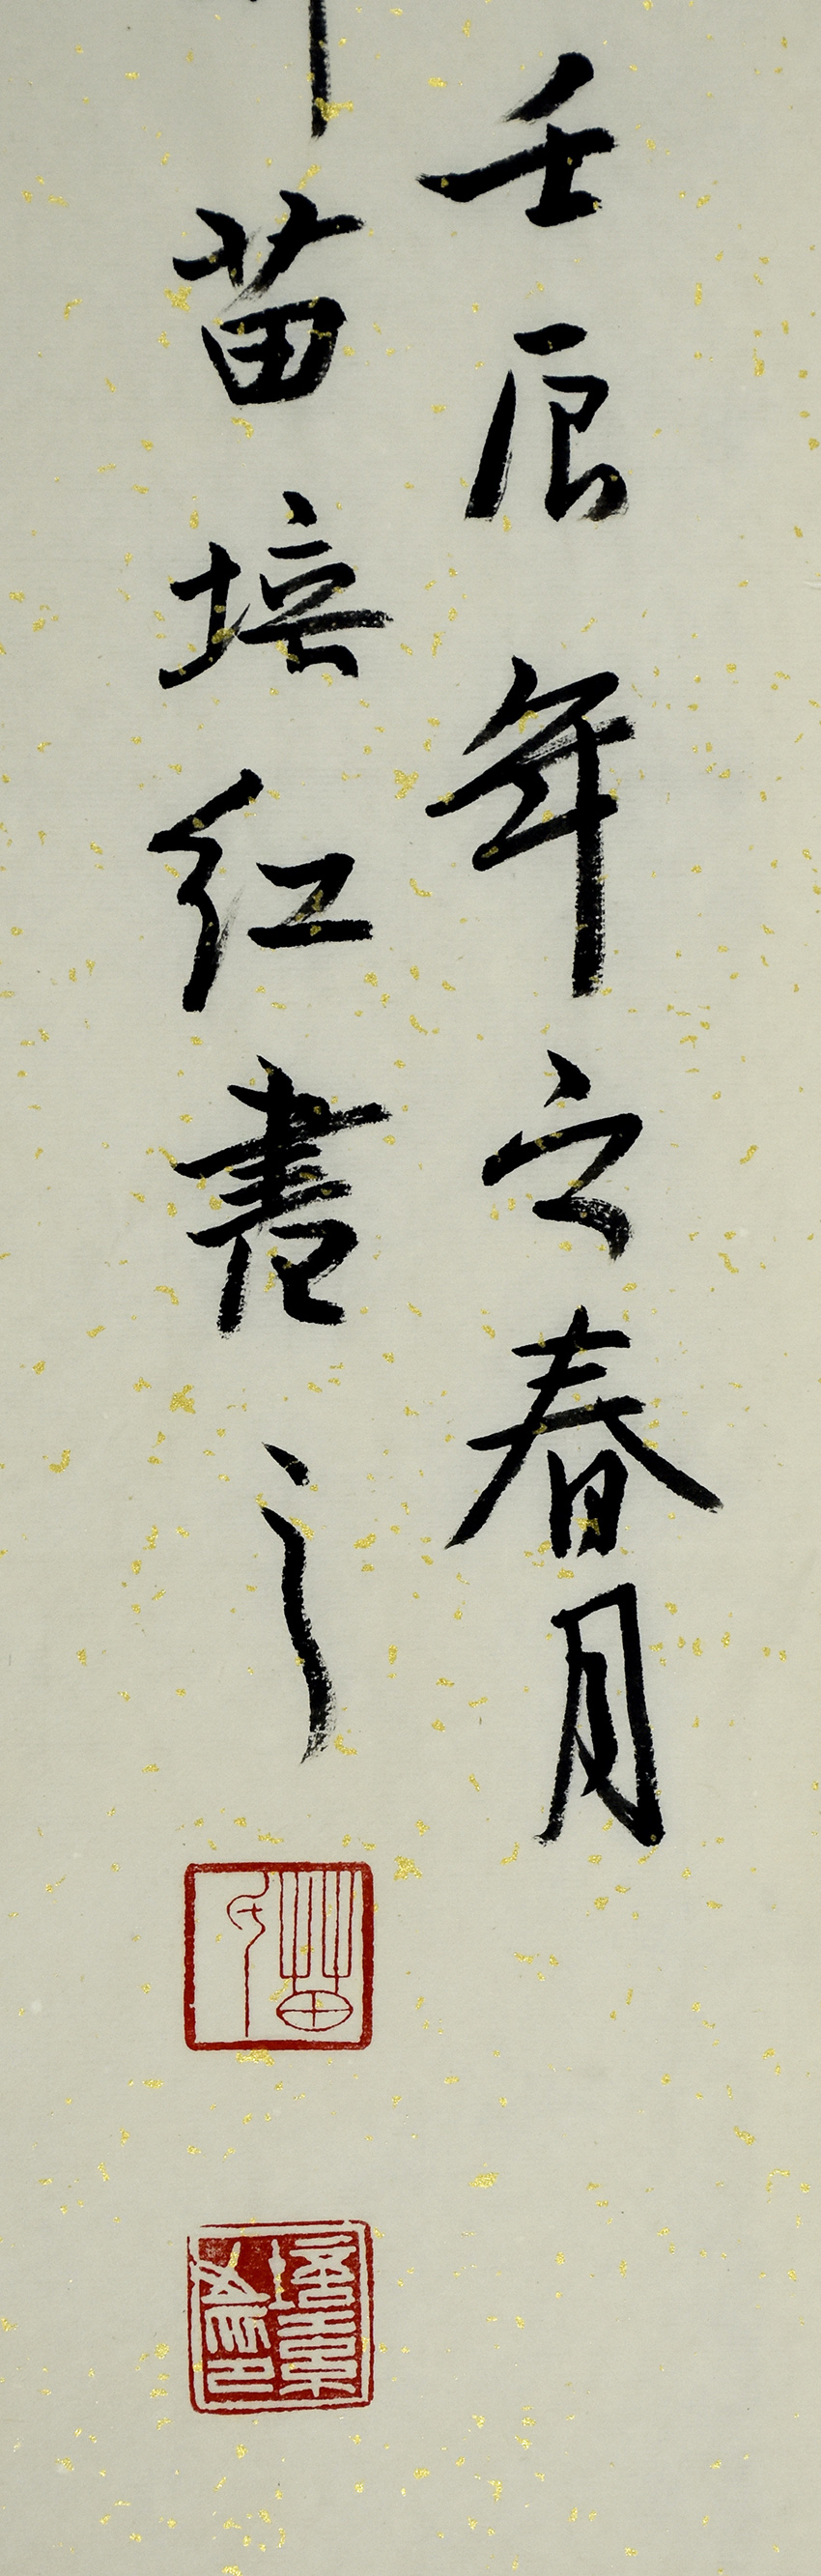 壬辰年之春月
苗培红書之
苗氏